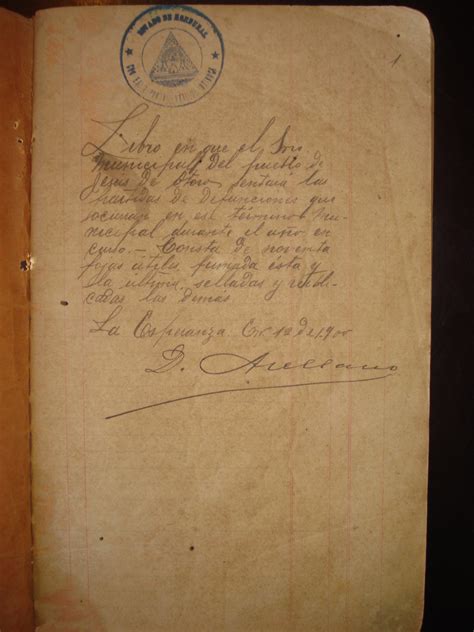 ESTADO DE HONDURAS
1
Libro en que el Srio
municipal del pueblo de
Jesus de Otoro sentará las
partidas de defunciones que
ocurran en ese término mu-
nicipal durante el año en
curso. — Consta de noventa
fojas útiles, firmada esta y
la última, selladas y rubri-
cadas las demas
La Esperanza En° 12 de 1900
D. Arellano